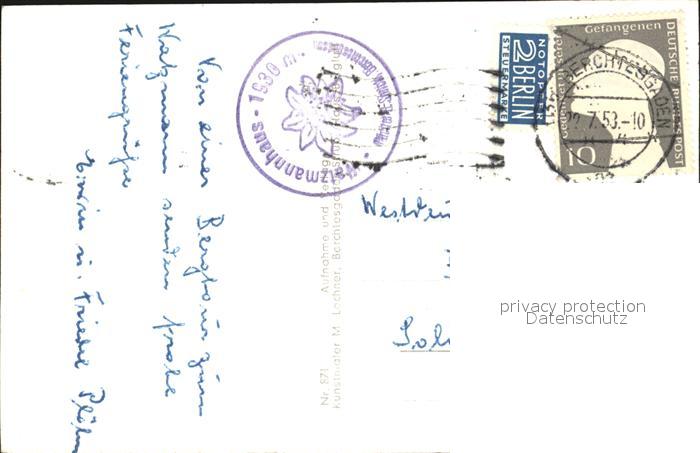 Von einer Bergtour zum
Watzmann senden frohe
Feriengrüße
Erwin u. Friedel
Watzmannhaus - 1930 m
Nr. 871 Aufnahme und
Kunstmaler M. Lechner, Berchtesgaden
NOTOPFER
2 BERLIN
STEUERMARKE
Gefangenen
DEUTSCHE BUNDESPOST
10
BERCHTESGADEN
2.7.53.-10
Westdeu
privacy protection
Datenschutz